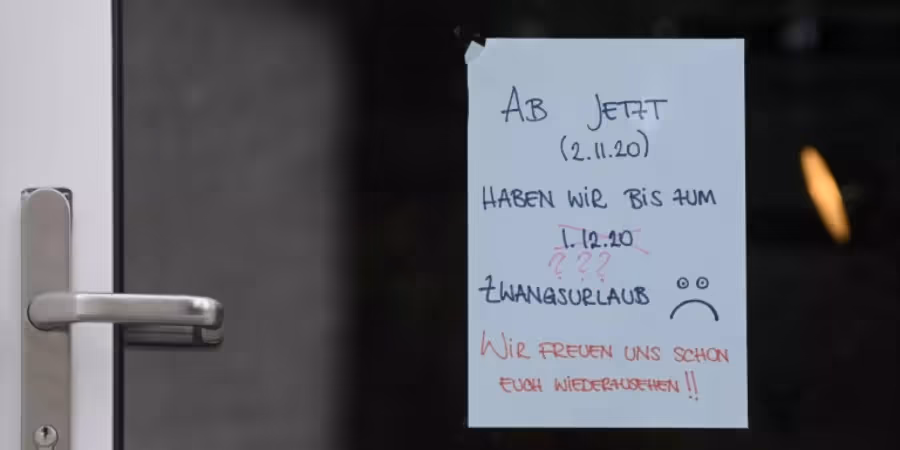 AB JETZT
(2.11.20)
HABEN WIR BIS ZUM
1.12.20
???
ZWANGSURLAUB
WIR FREUEN UNS SCHON
EUCH WIEDERZUSEHEN!!